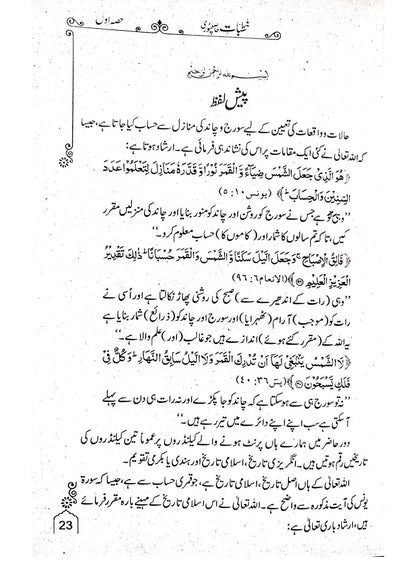 خطبات حصہ اول
بسم اللہ الرحمن الرحیم
پیش لفظ
حالات و واقعات کی تعیین کے لیے سورج و چاند کی منازل سے حساب کیا جاتا ہے، جیسا
کہ اللہ تعالیٰ نے کئی ایک مقامات پر اس کی نشاندہی فرمائی ہے۔ ارشاد ہوتا ہے:
﴿هُوَ الَّذِیْ جَعَلَ الشَّمْسَ ضِیَآءً وَّ الْقَمَرَ نُوْرًا وَّ قَدَّرَهٗ مَنَازِلَ لِتَعْلَمُوْا عَدَدَ
السِّنِیْنَ وَالْحِسَابَ ؕ﴾ (یونس ۱۰: ۵)
”وہی تو ہے جس نے سورج کو روشن اور چاند کو منور بنایا اور چاند کی منزلیں مقرر
کیں، تاکہ تم سالوں کا شمار اور (کاموں کا) حساب معلوم کرو۔“
﴿فَالِقُ الْاِصْبَاحِ ۚ وَجَعَلَ الَّیْلَ سَكَنًا وَّ الشَّمْسَ وَ الْقَمَرَ حُسْبَانًا ؕ ذٰلِكَ تَقْدِیْرُ
الْعَزِیْزِ الْعَلِیْمِ﴾ (الانعام ۶: ۹۶)
”وہی (رات کے اندھیرے سے) صبح کی روشنی پھاڑ نکالتا ہے اور اُسی نے
رات کو (موجب) آرام (ٹھہرایا) اور سورج اور چاند کو (ذرائع) شمار بنایا ہے
یہ اللہ کے (مقرر کئے ہوئے) اندازے ہیں جو غالب (اور) علم والا ہے۔“
﴿لَا الشَّمْسُ یَنْۢبَغِیْ لَهَاۤ اَنْ تُدْرِكَ الْقَمَرَ وَلَا الَّیْلُ سَابِقُ النَّهَارِ ؕ وَكُلٌّ فِیْ
فَلَكٍ یَّسْبَحُوْنَ﴾ (یٰس ۳۶: ۴۰)
”نہ تو سورج ہی سے ہو سکتا ہے کہ چاند کو جا پکڑے اور نہ رات ہی دن سے پہلے
آ سکتی ہے سب اپنے اپنے دائرے میں تیر رہے ہیں۔“
دورِ حاضر میں ہمارے ہاں پرنٹ ہونے والے کیلنڈروں پر عموماً تین کیلنڈروں کی
تاریخیں رقم ہوتیں ہیں۔ انگریزی تاریخ، اسلامی تاریخ اور ہندی یا بکرمی تقویم۔
اللہ تعالیٰ کے ہاں اصل تاریخ، اسلامی تاریخ ہے، جو قمری حساب سے ہے، جیسا کہ سورۃ
یونس کی آیت مذکورہ سے واضح ہے۔ اللہ تعالیٰ نے اس اسلامی تاریخ کے مہینے بارہ مقرر فرمائے
ہیں، ارشاد باری تعالیٰ ہے:
23